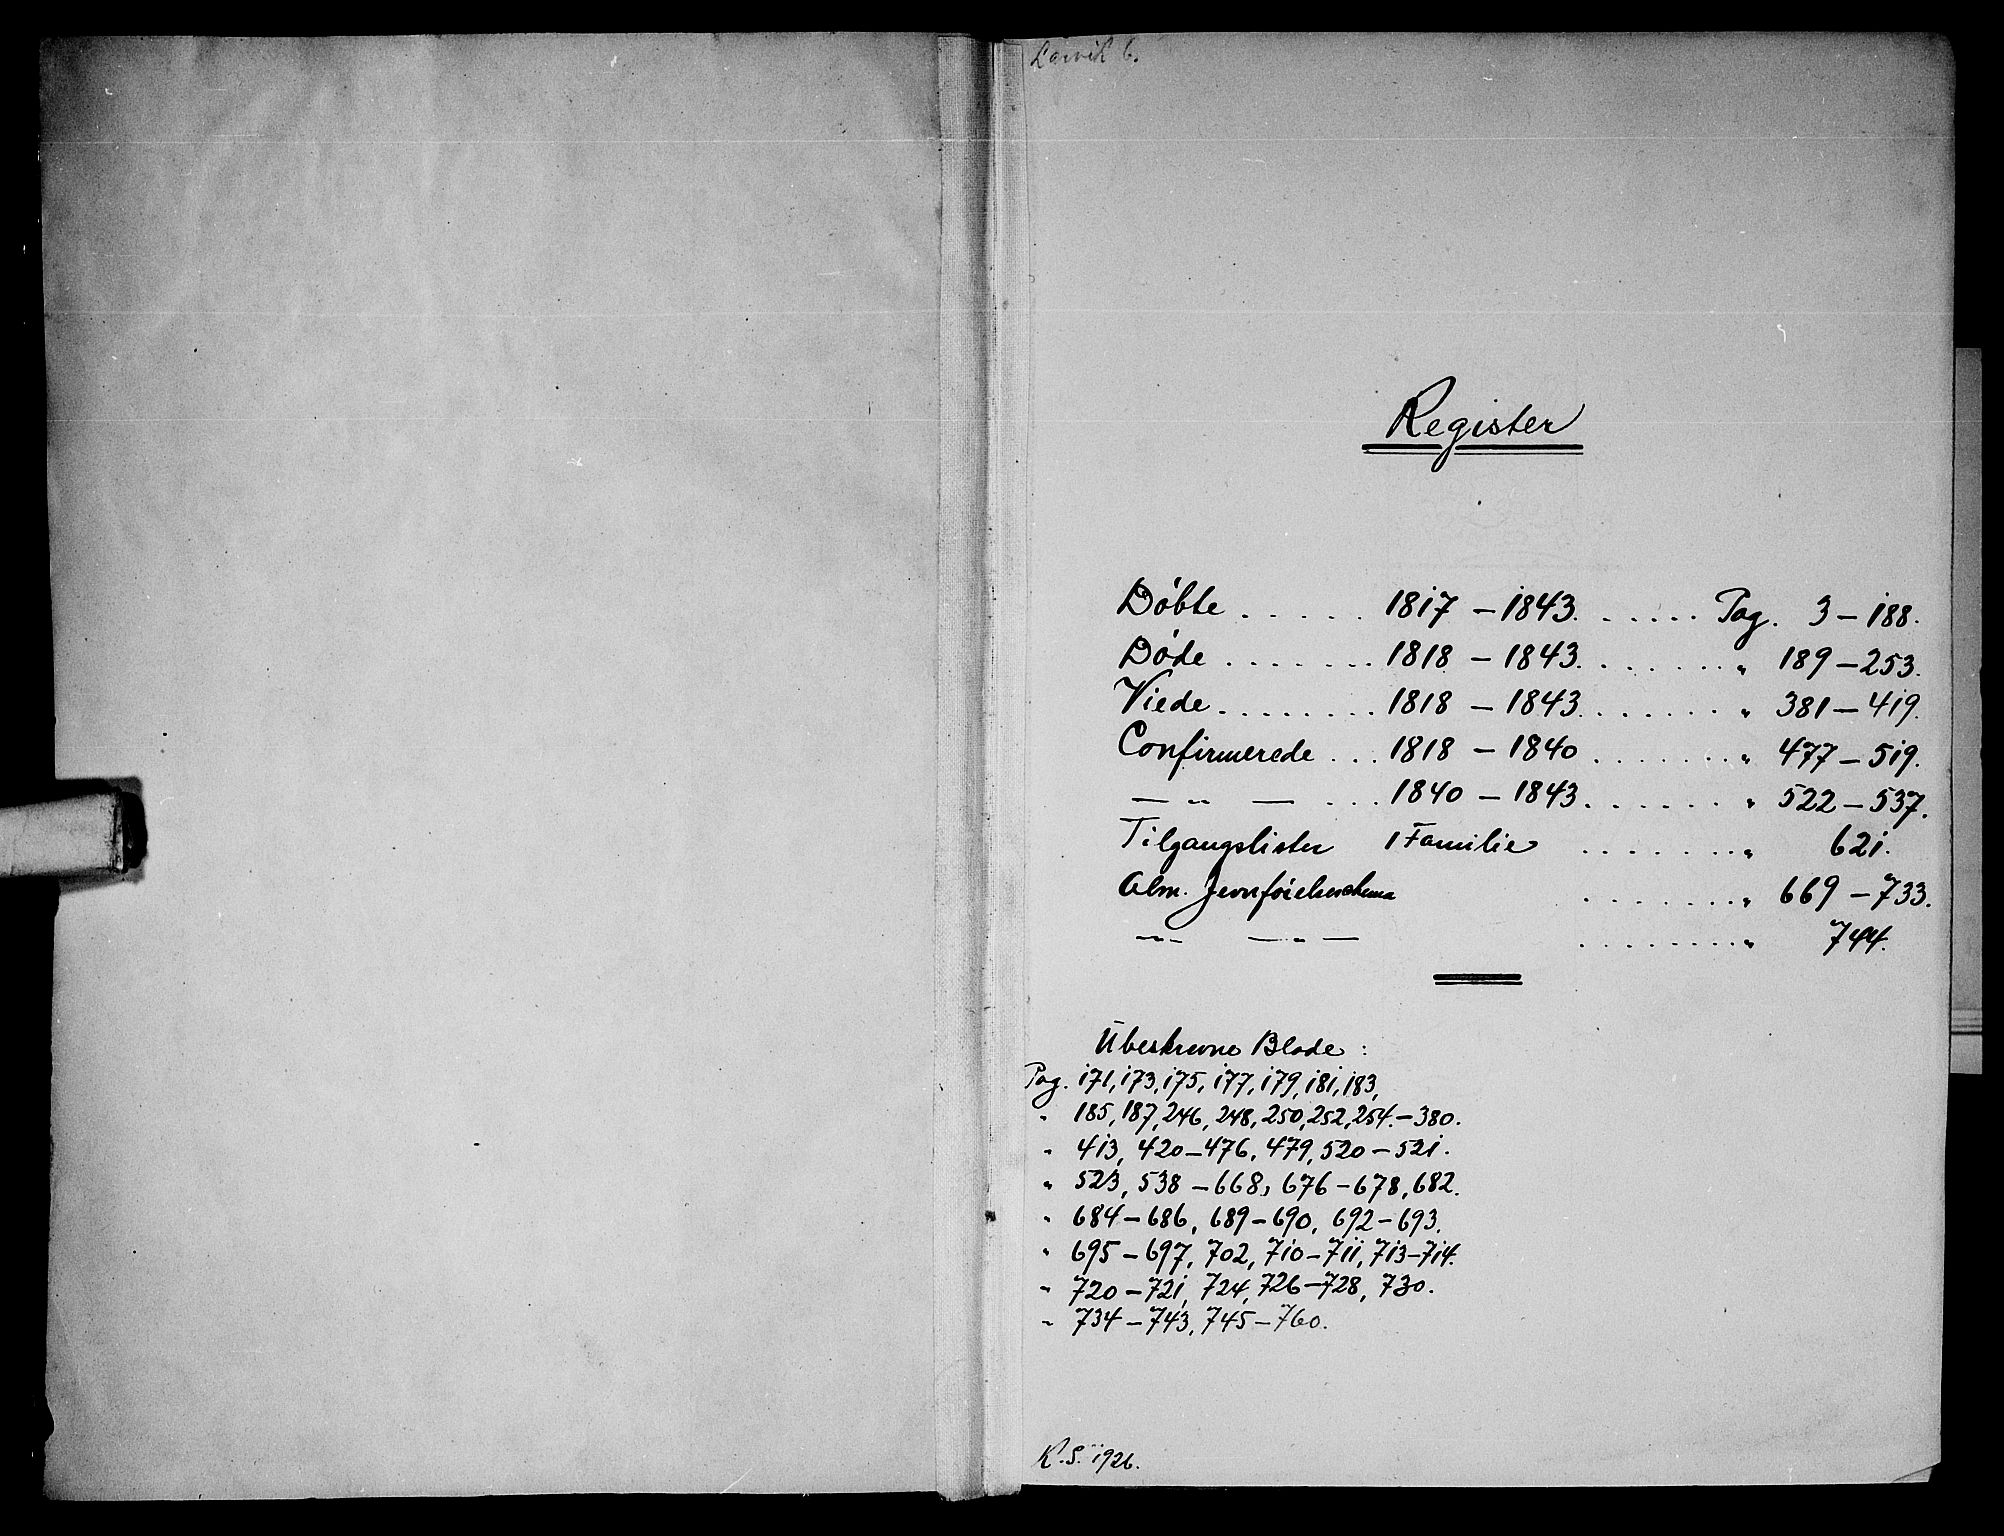 Larvik 6.
Register
Döbte . . . . . . 1817 – 1843. . . . . . Pag. 3 – 188.
Döde . . . . . . . 1818 – 1843. . . . . . . " 189 – 253.
Viede . . . . . . . . 1818 – 1843. . . . . . . " 381 – 419.
Confirmerede . . . 1818 – 1840 . . . . . . . " 477 – 519.
— " — . . . 1840 – 1843. . . . . . . " 522 – 537.
Tilgangslister 1 Familie . . . . . . . " 621.
Alm. Jevnførelsesschema . . . . . . . " 669 – 733.
— " — — " — . . . . . . . . " 744.
Ubeskrevne Blade :
Pag. 171, 173, 175, 177, 179, 181, 183,
" 185, 187, 246, 248, 250, 252, 254. – 380.
" 413, 420 – 476, 479, 520 – 521.
" 523, 538 – 668, 676 – 678, 682.
" 684 – 686, 689 – 690, 692 – 693.
" 695 – 697, 702, 710 – 711, 713 – 714.
" 720 – 721, 724, 726 – 728, 730.
" 734 – 743, 745 – 760.
K. S. 1926.